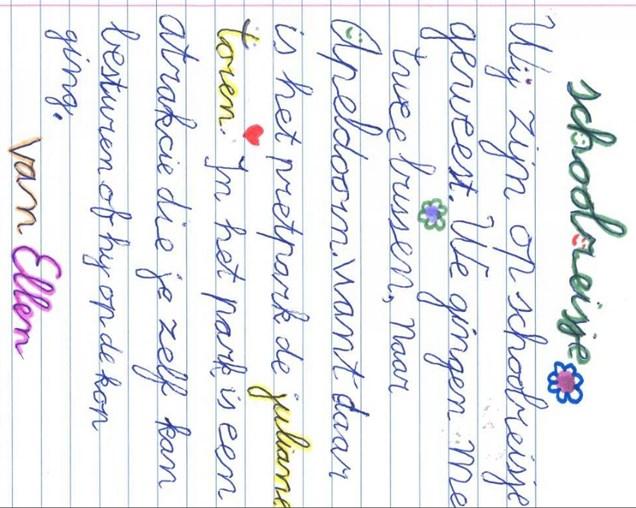 schoolreisje
Wij zijn op schoolreisje
geweest. We gingen me
twee bussen, naar
Apeldoorn. want daar
is het pretpark de juliana
toren. In het park is een
atrakcie die je zelf kan
besturen of hij op de kop
ging.
van Ellen